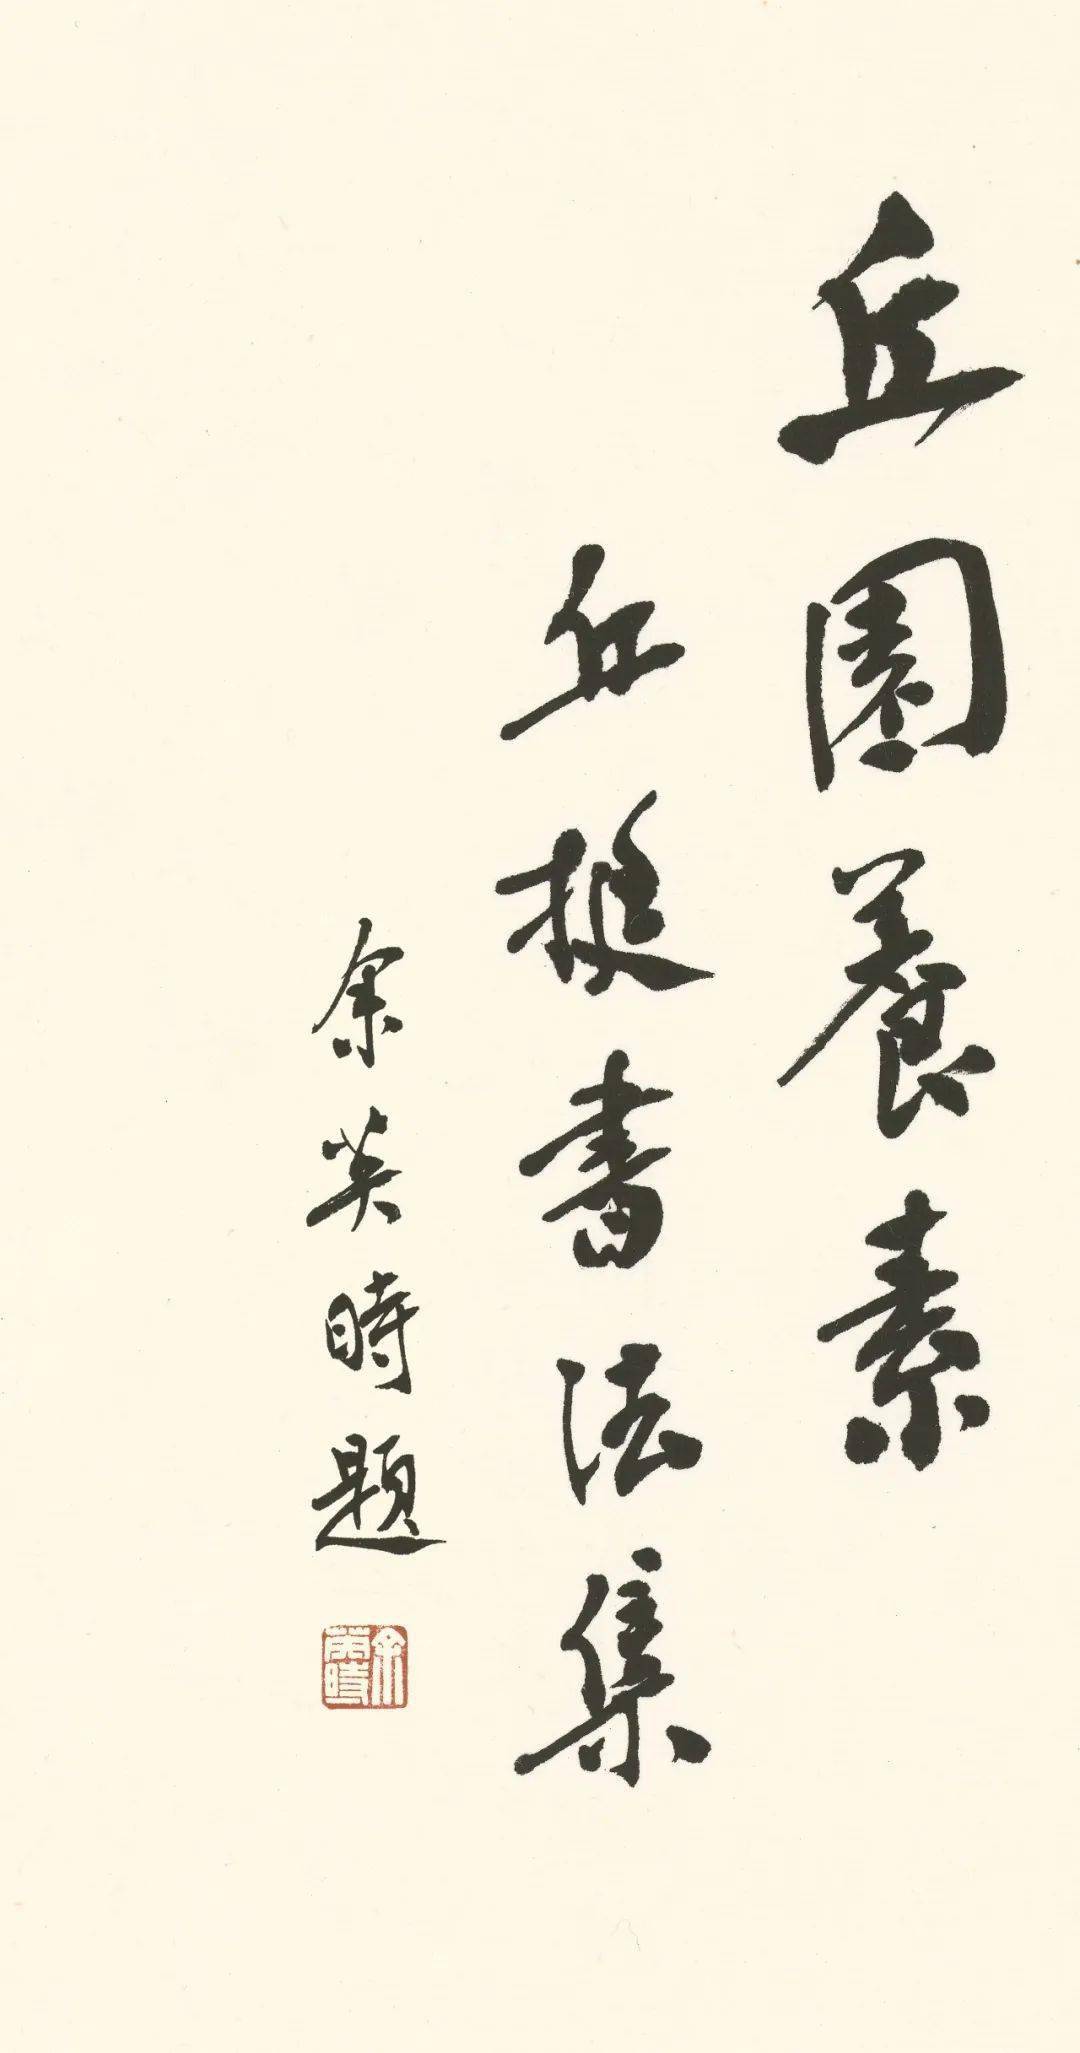 丘園養素
丘挺書法集
余英時題
余英時